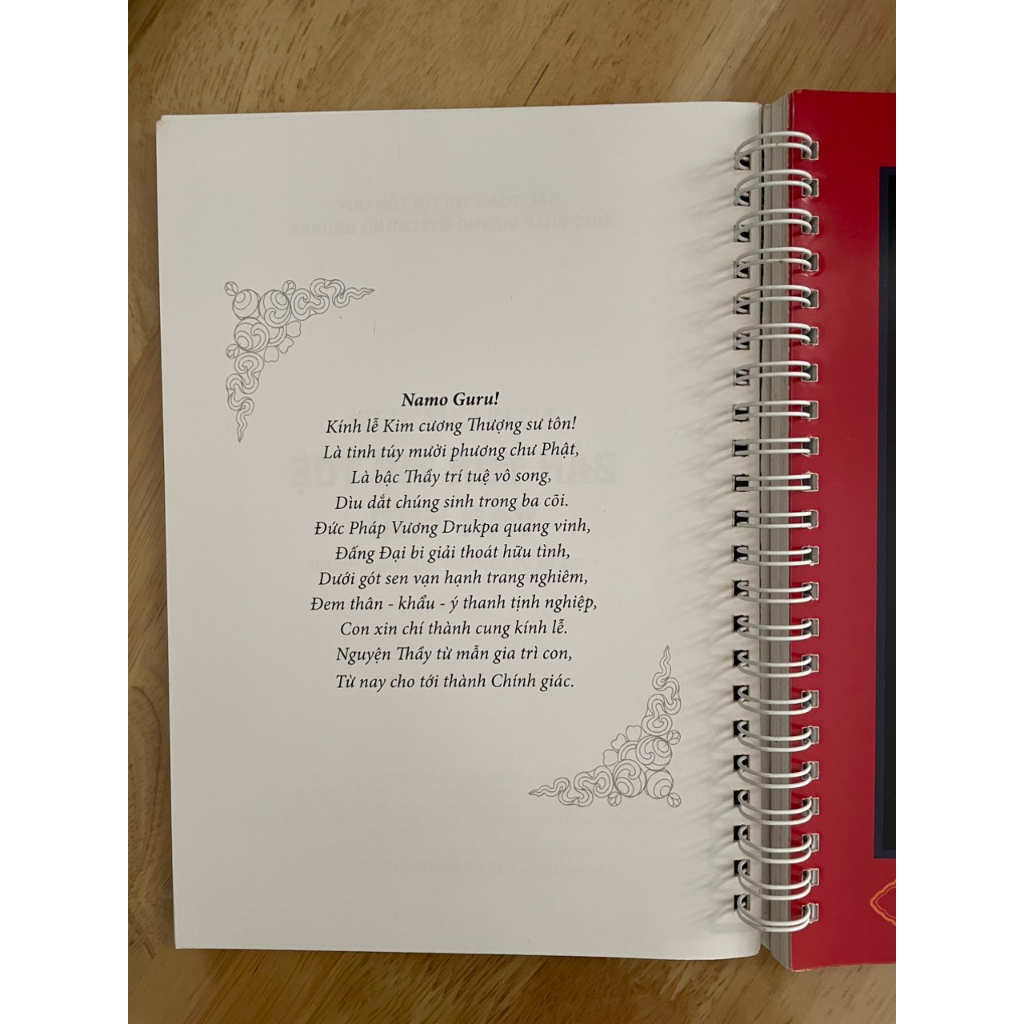 Namo Guru!
Kính lễ Kim cương Thượng sư tôn!
Là tinh túy mười phương chư Phật,
Là bậc Thầy trí tuệ vô song,
Dìu dắt chúng sinh trong ba cõi.
Đức Pháp Vương Drukpa quang vinh,
Đấng Đại bi giải thoát hữu tình,
Dưới gót sen vạn hạnh trang nghiêm,
Đem thân - khẩu - ý thanh tịnh nghiệp,
Con xin chí thành cung kính lễ.
Nguyện Thầy từ mẫn gia trì con,
Từ nay cho tới thành Chính giác.